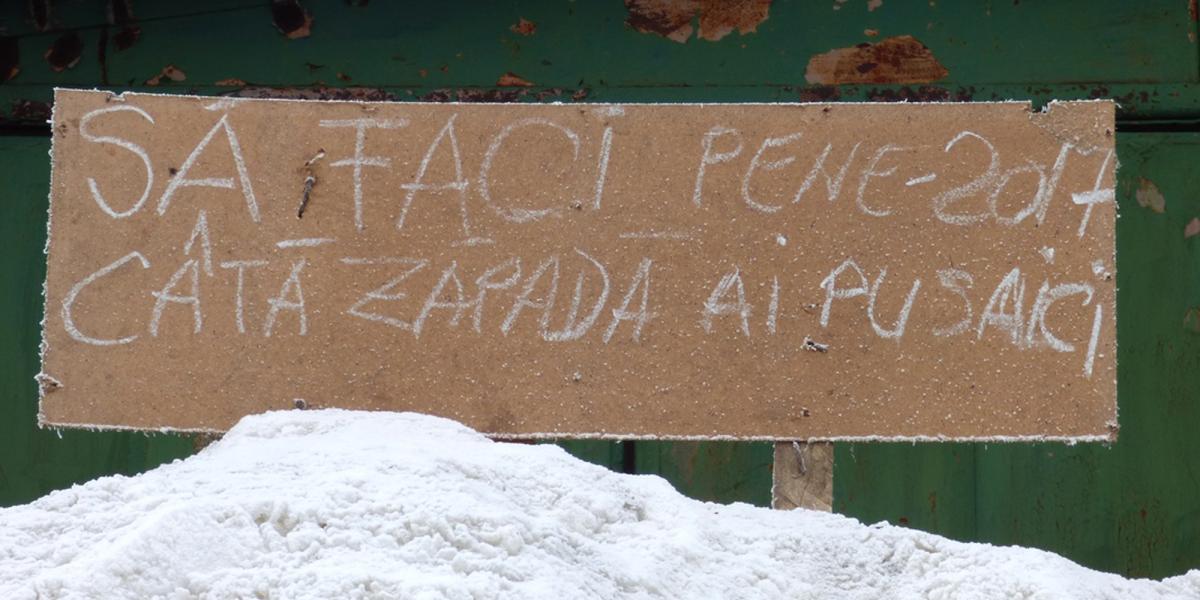 SĂ FACI PENE-2017
CÂTĂ ZAPADĂ AI PUS AICI